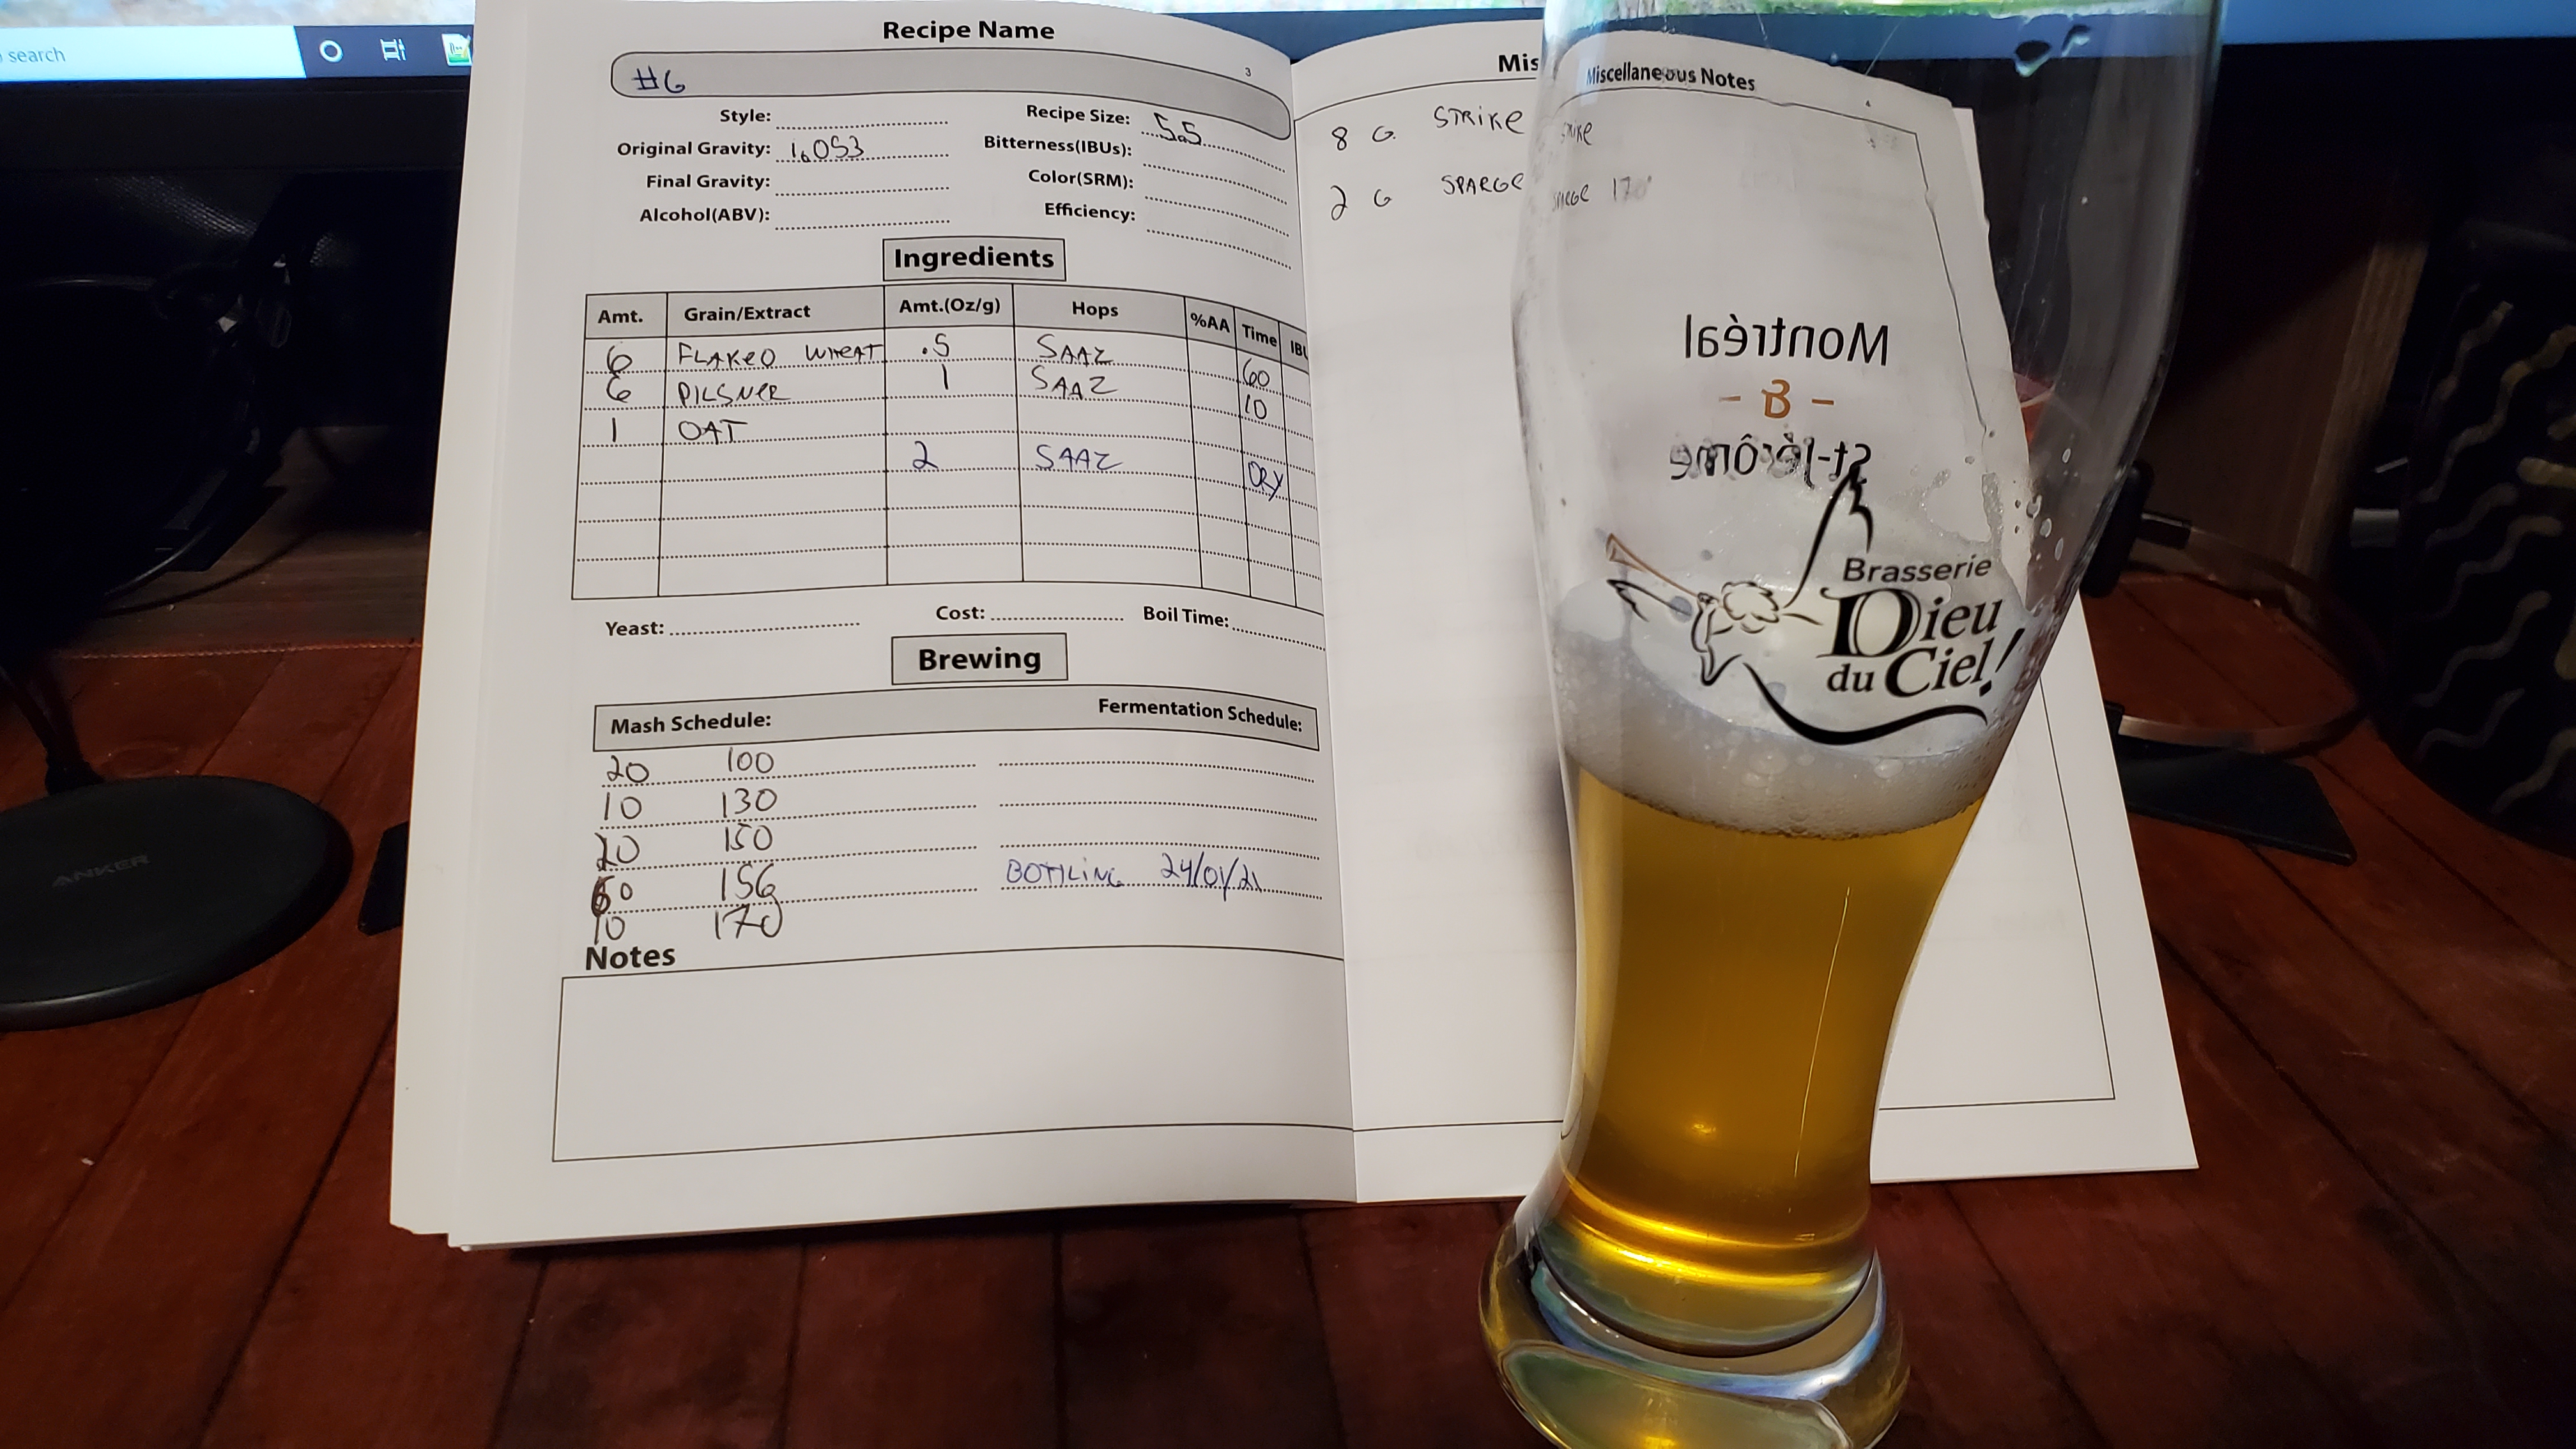 search
Recipe Name
3
#6
Style:
Recipe Size: 5.5
Original Gravity: 1.053
Bitterness(IBUs):
Final Gravity:
Color(SRM):
Alcohol(ABV):
Efficiency:
Ingredients
Amt. Grain/Extract Amt.(Oz/g) Hops %AA Time
6 FLAKED WHEAT .5 SAAZ 60
6 PILSNER 1 SAAZ 10
1 OAT
2 SAAZ DRY
Yeast: Cost: Boil Time:
Brewing
Mash Schedule: Fermentation Schedule:
20 100
10 130
20 150
60 156 BOTTLING 24/01/21
10 170
Notes
Miscellaneous Notes
4
8 G. STRIKE
2 G SPARGE 170°
Montréal
- & -
St-Jérôme
Brasserie
Dieu
du Ciel!
ANKER